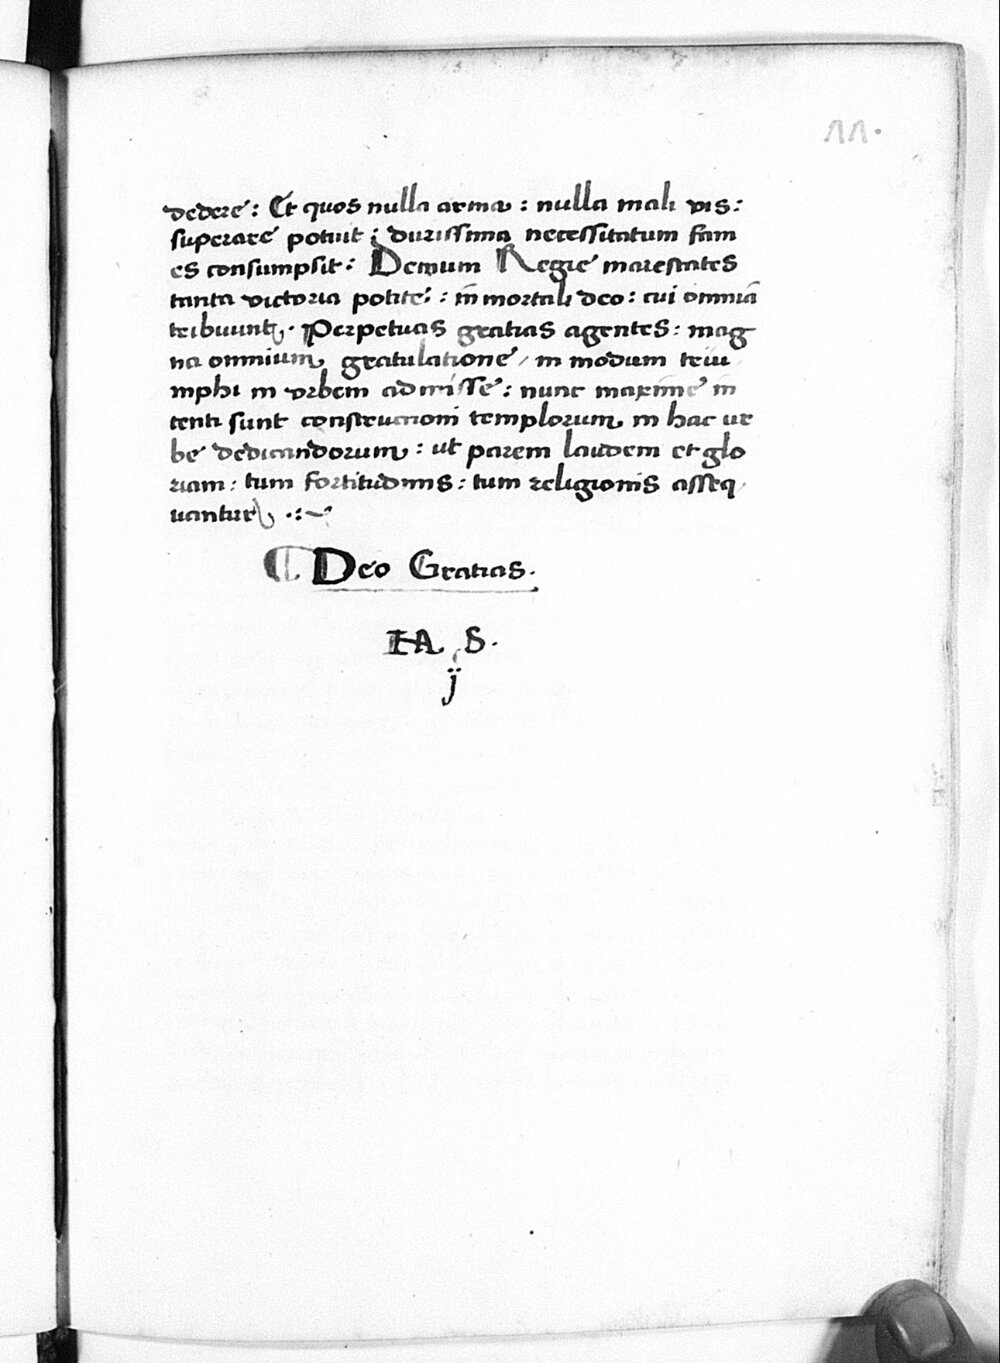 11.
dedere: Et quos nulla arma: nulla mali vis:
superare potuit: durissima necessitatum fam
es consumpsit: Demum Regie maiestates
tanta victoria potite: immortali deo: cui omnia
tribuunt. Perpetuas gratias agentes: mag
na omnium gratulatione / in modum triu
mphi in vrbem admisse: nunc maxime in
tenti sunt constructioni templorum in hac ur
be dedicandorum: ut parem laudem et glo
riam: tum fortitudinis: tum religionis asseq
uantur
Deo Gratias.
HA S.
ij